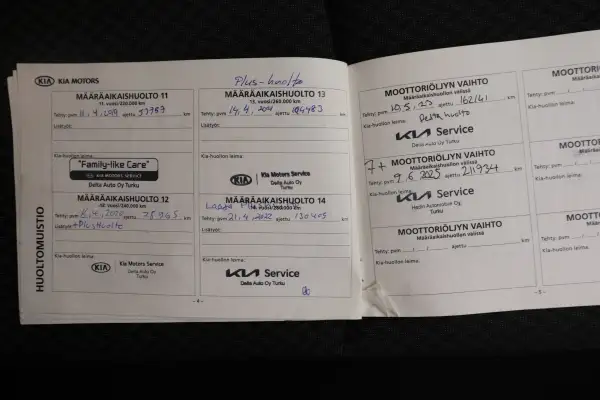 KIA KIA MOTORS
Plus-huolto
MÄÄRÄAIKAISHUOLTO 11
11. vuosi/220.000 km
Tehty: pvm 11.4.2019 ajettu 53787 km
Lisätyö:
Kia-huollon leima:
"Family-like Care"
KIA MOTORS SERVICE
Delta Auto Oy Turku
MÄÄRÄAIKAISHUOLTO 12
12. vuosi/240.000 km
Tehty: pvm 6.4.2020 ajettu 78965 km
Lisätyö: +Plushuolto
Kia-huollon leima:
KIA Kia Motors Service
Delta Auto Oy
Turku
MÄÄRÄAIKAISHUOLTO 13
13. vuosi/260.000 km
Tehty: pvm 14.4.2021 ajettu 104483 km
Lisätyö:
Kia-huollon leima:
KIA Kia Motors Service
Delta Auto Oy
Turku
MÄÄRÄAIKAISHUOLTO 14
14. vuosi/280.000 km
Tehty: pvm 21.4.2022 ajettu 130405 km
Lisätyö:
Kia-huollon leima:
KIA Service
Delta Auto Oy Turku
HUOLTOMUISTIO
- 4 -
MOOTTORIÖLJYN VAIHTO
Määräaikaishuollon välissä
Tehty: pvm 10.5.23 ajettu 162141 km
Kia-huollon leima: Delta huolto
KIA Service
Delta Auto Oy Turku
7+ MOOTTORIÖLJYN VAIHTO
Määräaikaishuollon välissä
Tehty: pvm 9.6.2025 ajettu 211934 km
Kia-huollon leima:
KIA Service
Hedin Automotive Oy,
Turku
MOOTTORIÖLJYN VAIHTO
Määräaikaishuollon välissä
Tehty: pvm ajettu km
Kia-huollon leima:
MOOTTORI
Tehty: pvm
Kia-huollon leima:
Tehty: pvm
Kia-huollon leima:
MOOTTO
Tehty: pvm
Kia-huollon leima:
- 5 -